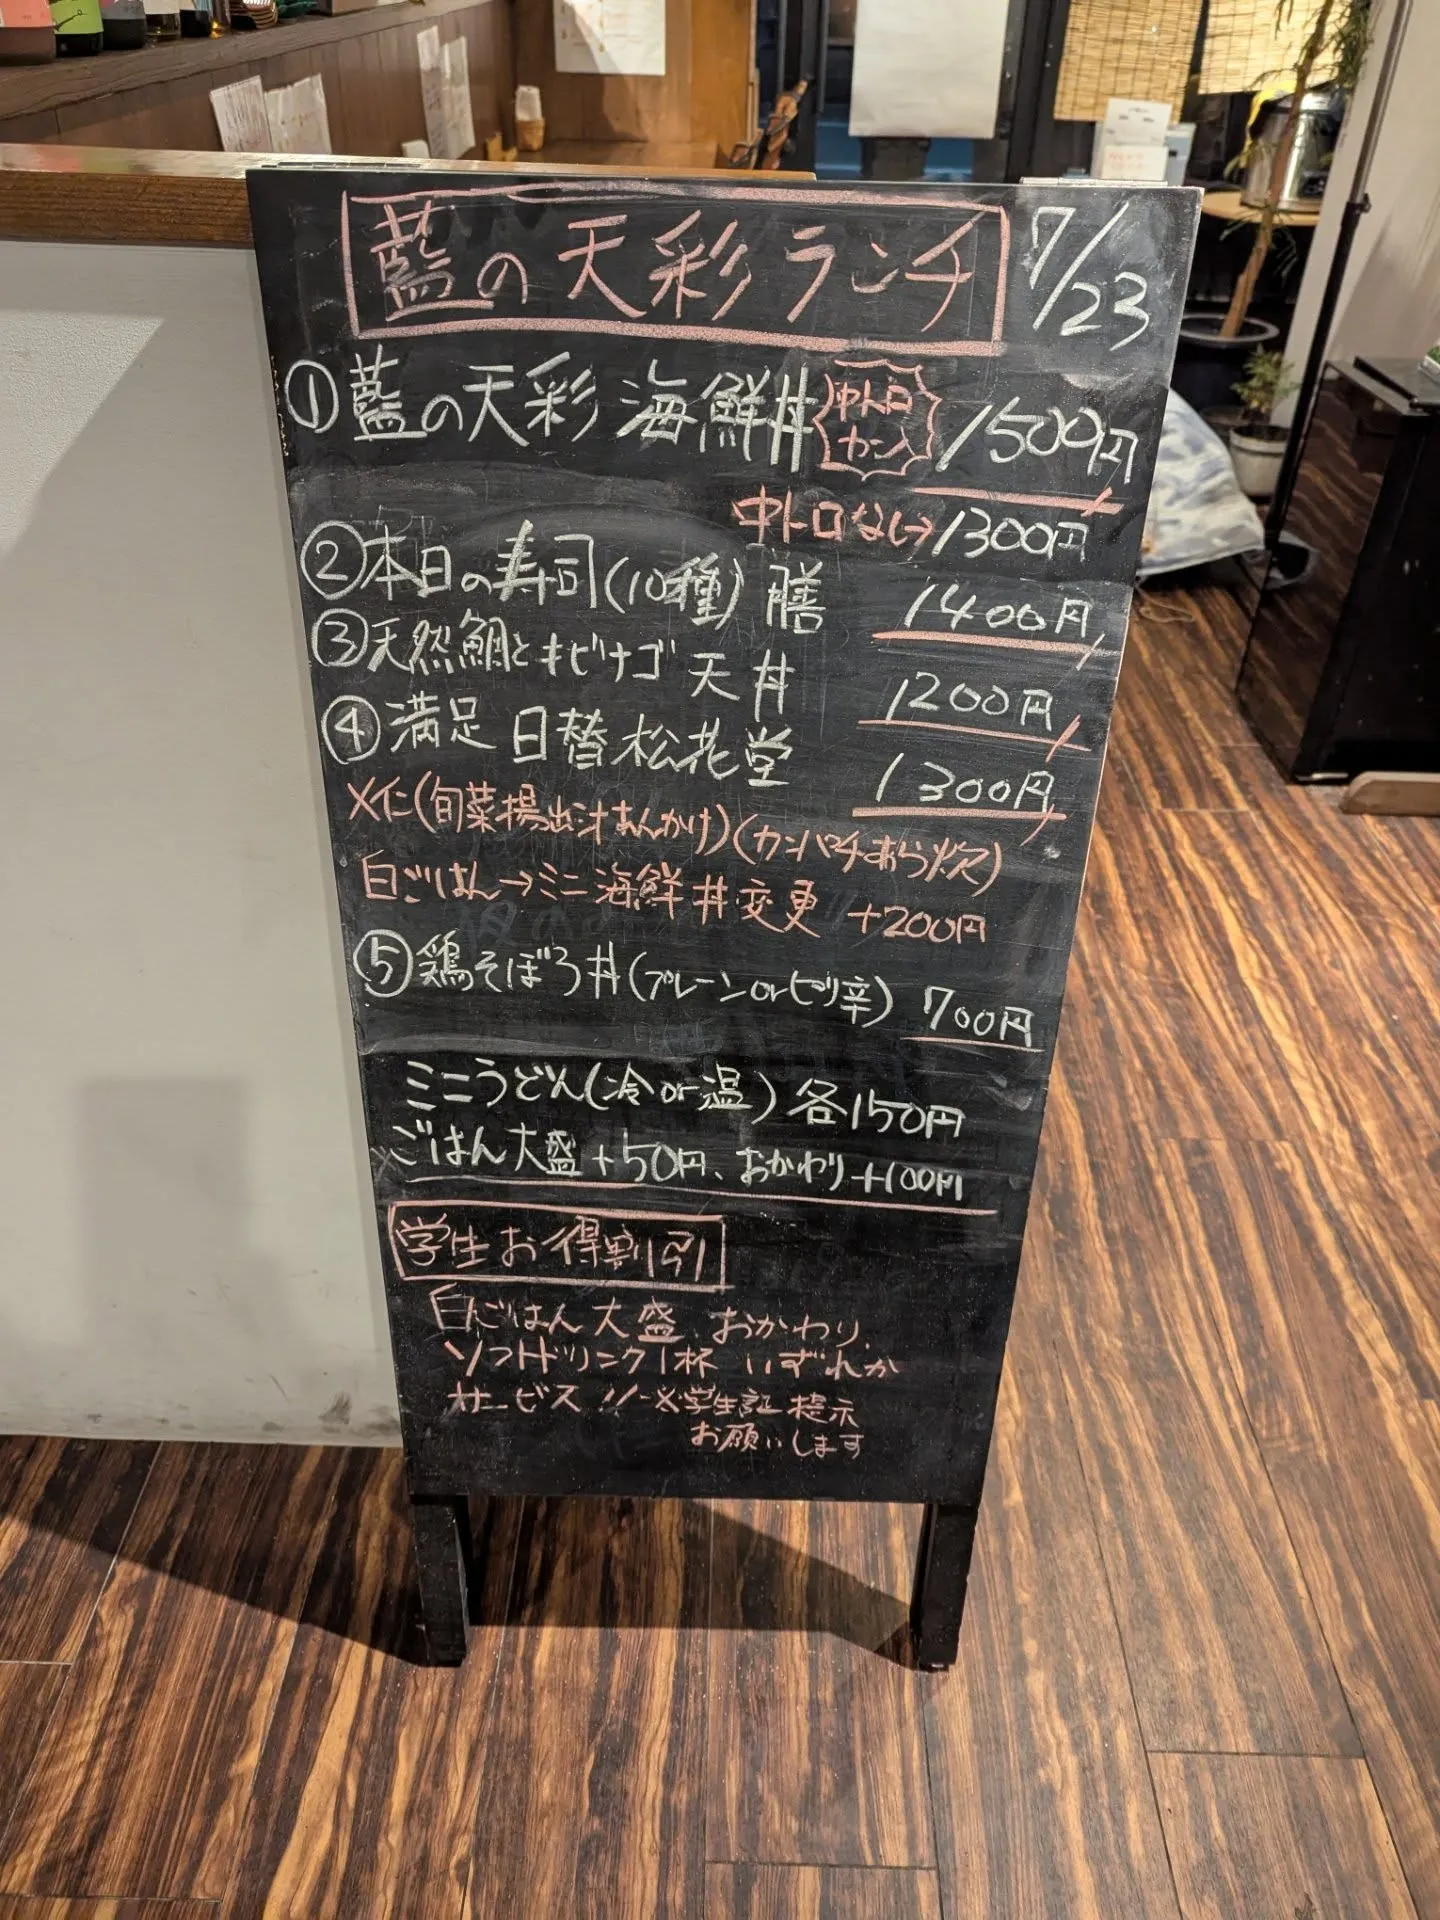 藍の天彩ランチ 7/23
①藍の天彩 海鮮丼 中トロ カン入 1500円
中トロなし→1300円
②本日の寿司(10種)膳 1400円
③天然鯛とキビナゴ天丼 1200円
④満足 日替松花堂 1300円
メイン(旬菜揚出汁あんかけ)(カンパチあら炊)
白ごはん→ミニ海鮮丼変更 +200円
⑤鶏そぼろ丼(プレーンorピリ辛) 700円
ミニうどん(冷or温)各150円
ごはん大盛+50円、おかわり+100円
学生お得割
白ごはん大盛、おかわり、
ソフトドリンク1杯 いずれか
サービス!!※学生証提示
お願いします